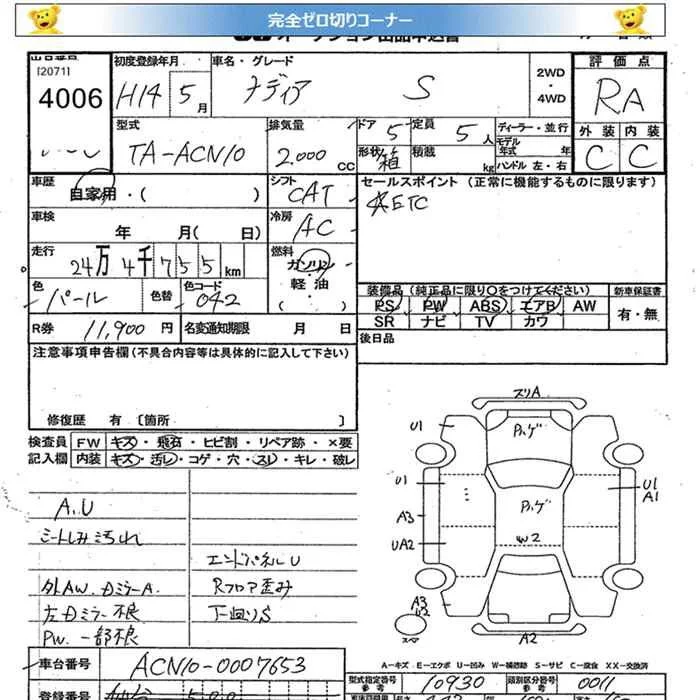 完全ゼロ切りコーナー
[2071]
4006
初度登録年月
H14 5月
車名・グレード
ナディア S
2WD
・
4WD
評価点
RA
外装 内装
C C
型式
TA-ACN10
排気量
2.000 cc
ドア 5
定員 5人
ディーラー・並行
モデル
年式 年
形状 箱
積載 kg
ハンドル 左・右
車歴
自家用・( )
シフト
CAT
セールスポイント (正常に機能するものに限ります)
ETC
車検
年 月( 日)
冷房
AC
走行
24万4千755km
燃料
ガソリン
・
軽油
・
( )
色
パール
色替
色コード
042
装備品(純正品に限り○をつけてください)
新車保証書
PS PW ABS エアB AW
SR ナビ TV カワ
有・無
R券 11,900円
名変通知期限 月 日
後日品
注意事項申告欄(不具合内容等は具体的に記入して下さい)
修復歴 有 [箇所 ]
検査員
記入欄
FW キズ・飛石・ヒビ割・リペア跡・×要
内装 キズ・汚レ・コゲ・穴・スレ・キレ・破レ
A.U
シートしみ汚れ
外AW. 
左Dミラー不良
PW. 一部不良
エンドパネルU
Rフロア歪み
下廻りS
スリA
ハゲ
U1
U1
A3
UA2
A3
U2
ハゲ
W2
U1
A1
A2
スペア
A-キズ E-エクボ U-凹み W-補修跡 S-サビ C-腐食 XX-交換済
車台番号
ACN10-0007653
型式指定番号
参考
10930
類別区分番号
参考
0011
登録番号